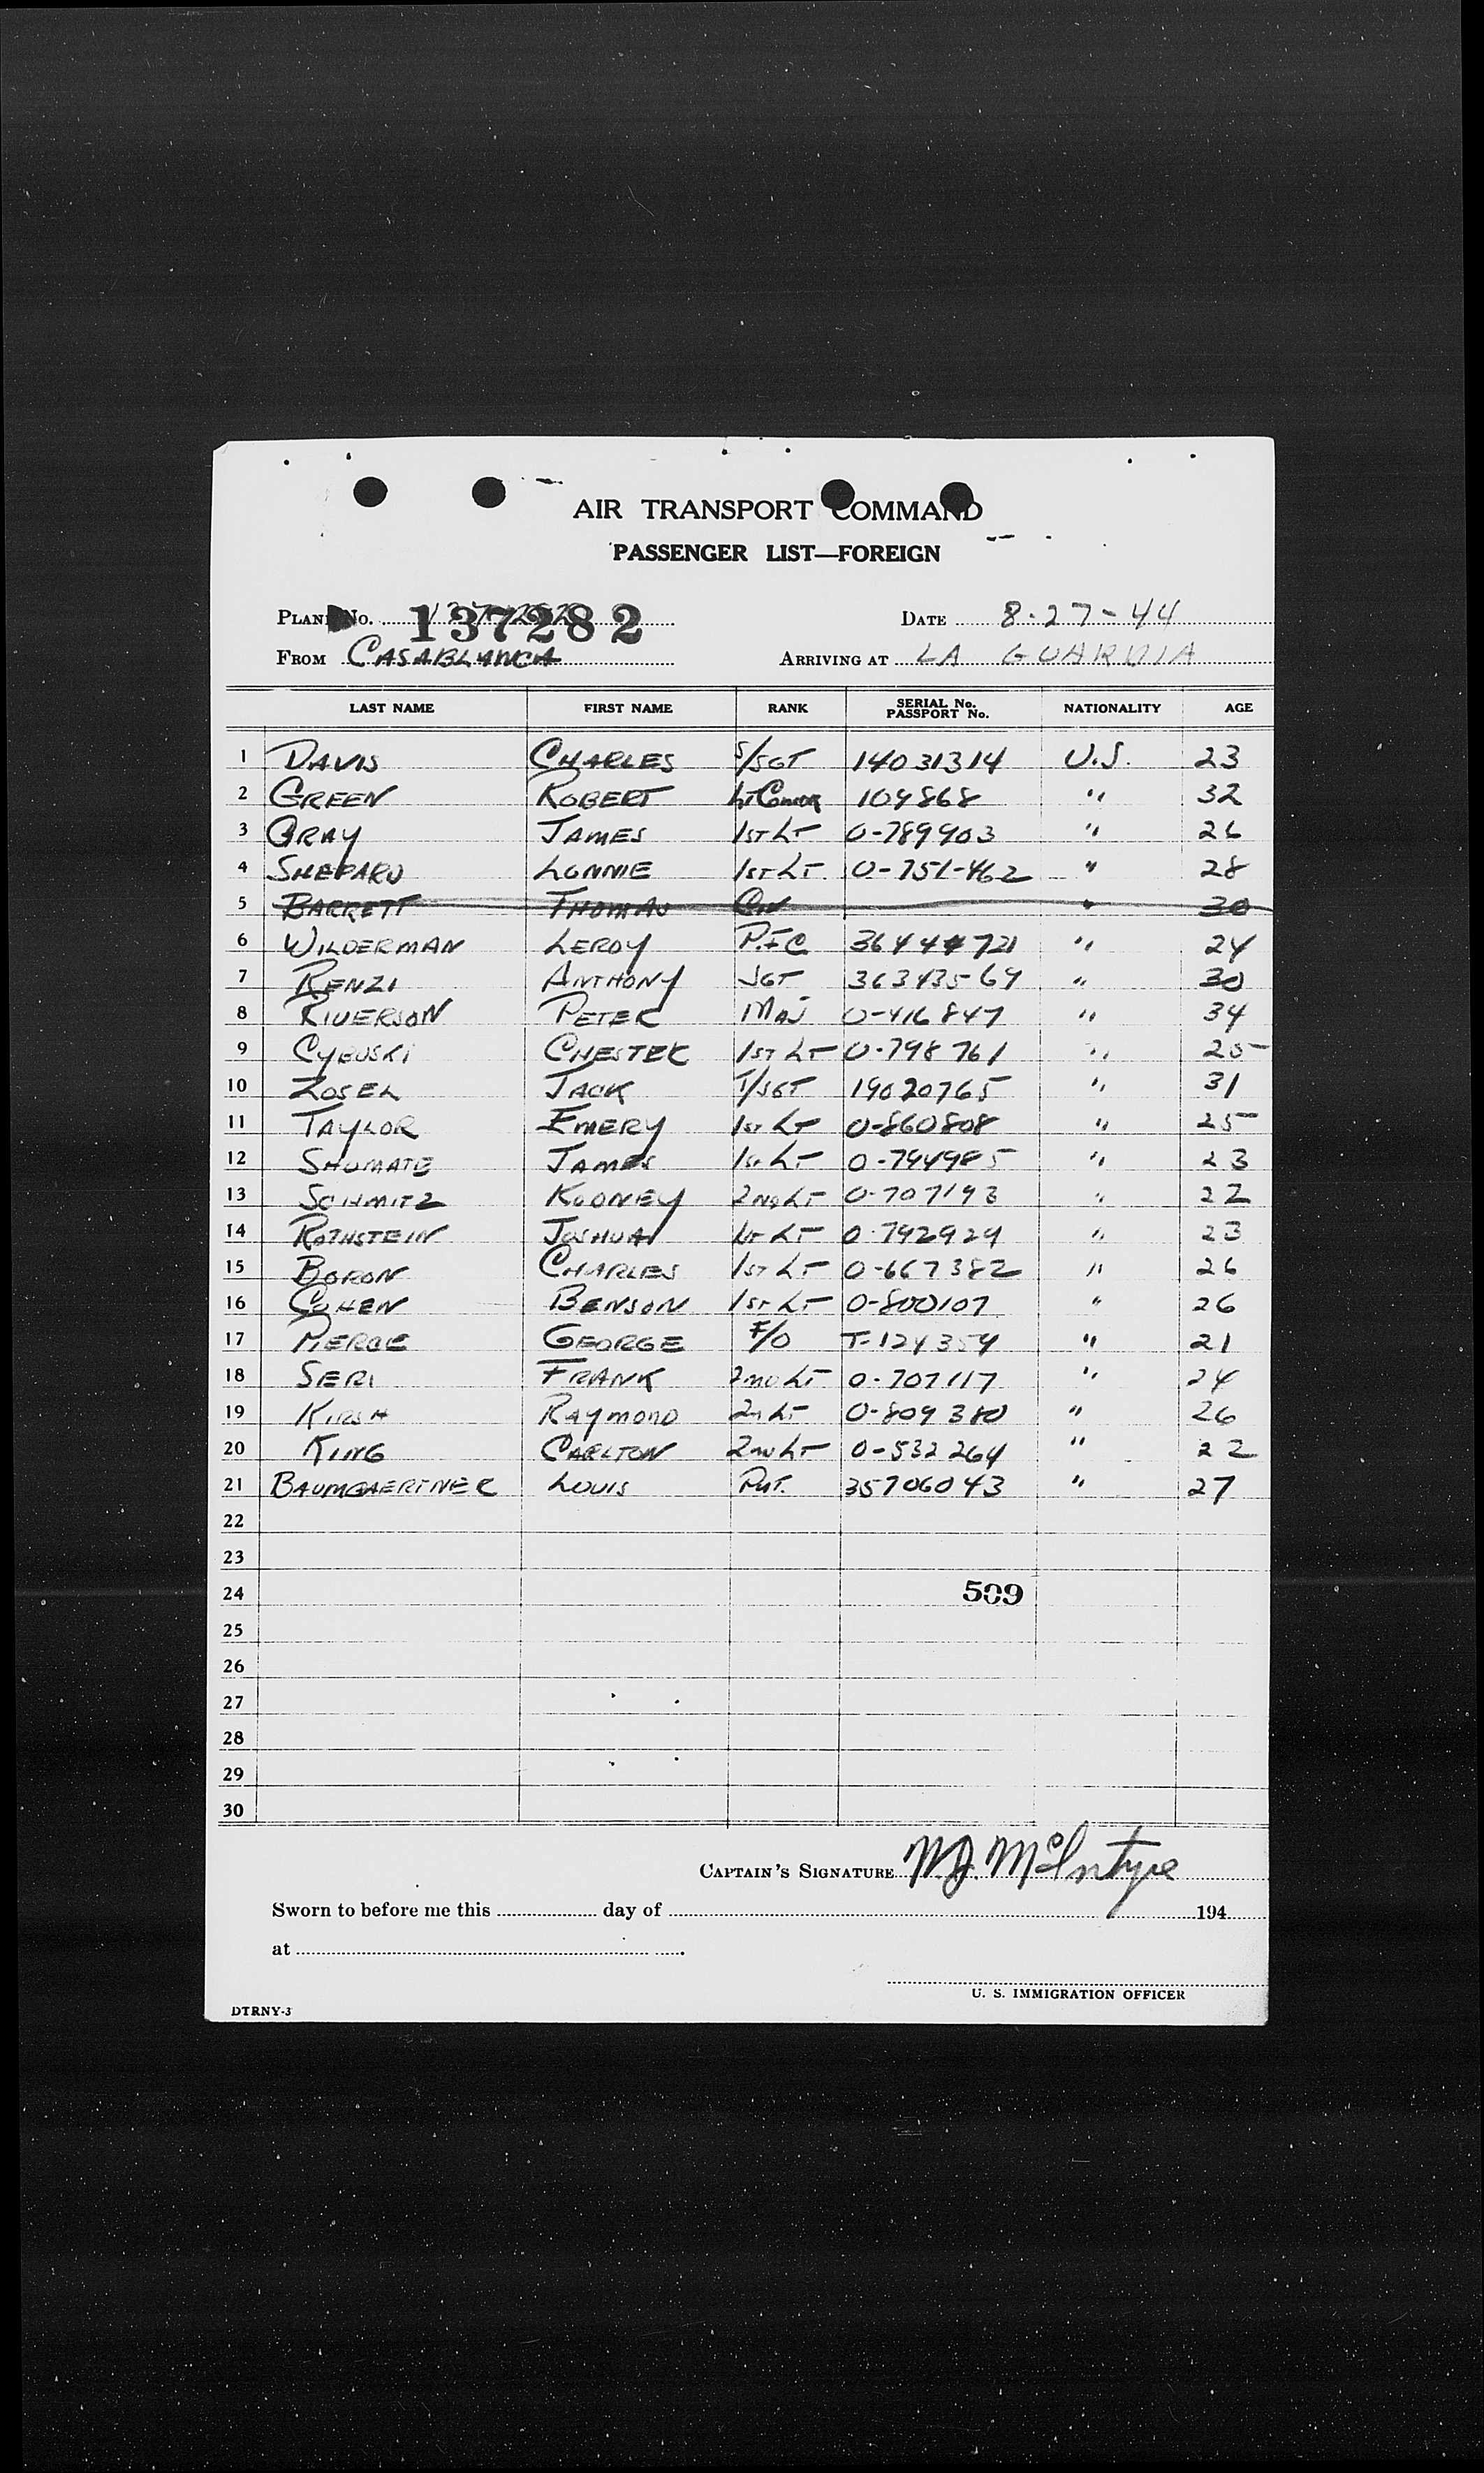 AIR TRANSPORT COMMAND
PASSENGER LIST—FOREIGN
PLANE No. 137282 DATE 8-27-44
FROM CASABLANCA ARRIVING AT LA GUARDIA
LAST NAME FIRST NAME RANK SERIAL No. PASSPORT No. NATIONALITY AGE
1 DAVIS CHARLES S/SGT 14031314 U.S. 23
2 GREEN ROBERT LT COMDR 109868 " 32
3 GRAY JAMES 1ST LT 0-789903 " 26
4 SHEPARD LONNIE 1ST LT. 0-751-462 " 28
5 BARRETT THOMAS CIV " 30
6 WILDERMAN LEROY P.F.C. 36444721 " 24
7 RENZI ANTHONY SGT 36343569 " 30
8 RIVERSON PETER MAJ 0-416847 " 34
9 CYBUSKI CHESTER 1ST LT 0-798761 " 25
10 ZOSEL JACK T/SGT 19020765 " 31
11 TAYLOR EMERY 1ST LT 0-860808 " 25
12 SHUMATE JAMES 1ST LT 0-794985 " 23
13 SCHMITZ RODNEY 2ND LT 0-707193 " 22
14 ROTHSTEIN JOSHUA 1ST LT 0-792929 " 23
15 BORON CHARLES 1ST LT 0-667382 " 26
16 COHEN BENSON 1ST LT 0-800107 " 26
17 PIERCE GEORGE F/O T-124354 " 21
18 SERI FRANK 2ND LT 0-707117 " 24
19 KIRSH RAYMOND 2N LT 0-809380 " 26
20 KING CARLTON 2ND LT 0-532264 " 22
21 BAUMGAERTNER LOUIS PVT. 35706043 " 27
22
23
24 509
25
26
27
28
29
30
CAPTAIN'S SIGNATURE W.J. McIntyre
Sworn to before me this day of 194
at
U. S. IMMIGRATION OFFICER
DTRNY-3